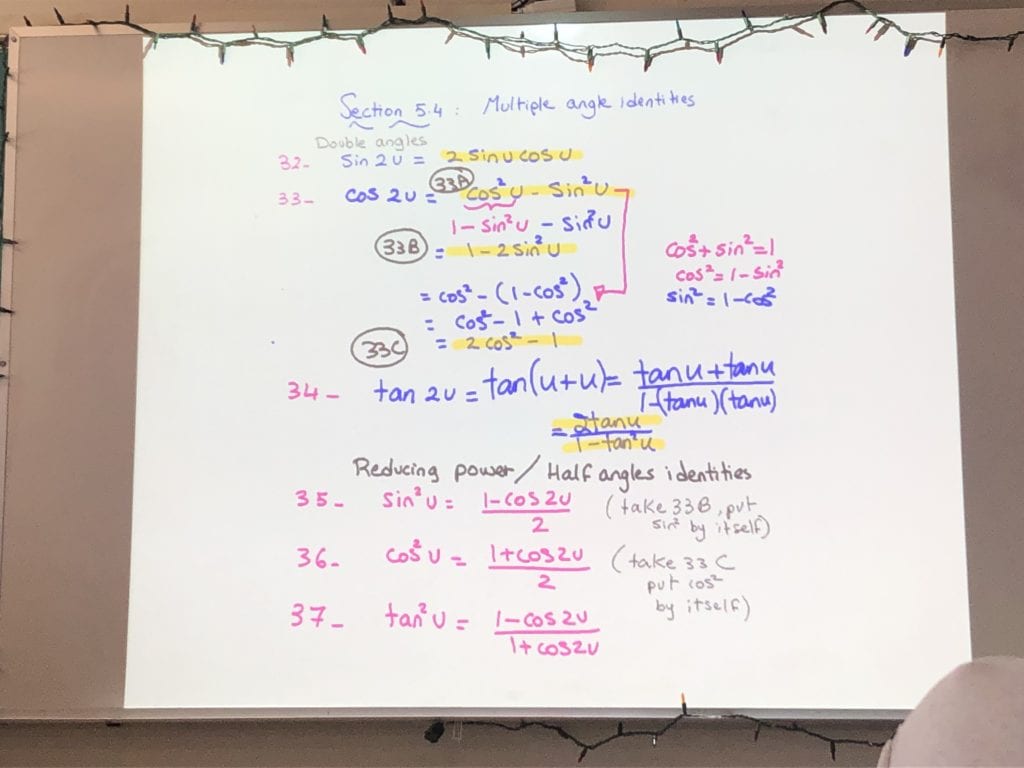 Section 5.4 : Multiple angle identities
Double angles
32- Sin 2u = 2 sinu cosu
33- cos 2u = 33A cos²u - Sin²u
1 - sin²u - sin²u
33B = 1 - 2 sin²u
cos² + sin² = 1
cos² = 1 - sin²
sin² = 1 - cos²
= cos² - (1 - cos²)
= cos² - 1 + cos²
33C = 2 cos² - 1
34- tan 2u = tan(u+u) = tanu + tanu / 1-(tanu)(tanu)
= 2tanu / 1 - tan²u
Reducing power / Half angles identities
35- sin²u = 1 - cos 2u / 2 (take 33B, put
sin² by itself)
36- cos²u = 1 + cos2u / 2 (take 33C
put cos²
by itself)
37- tan²u = 1 - cos 2u / 1 + cos2u